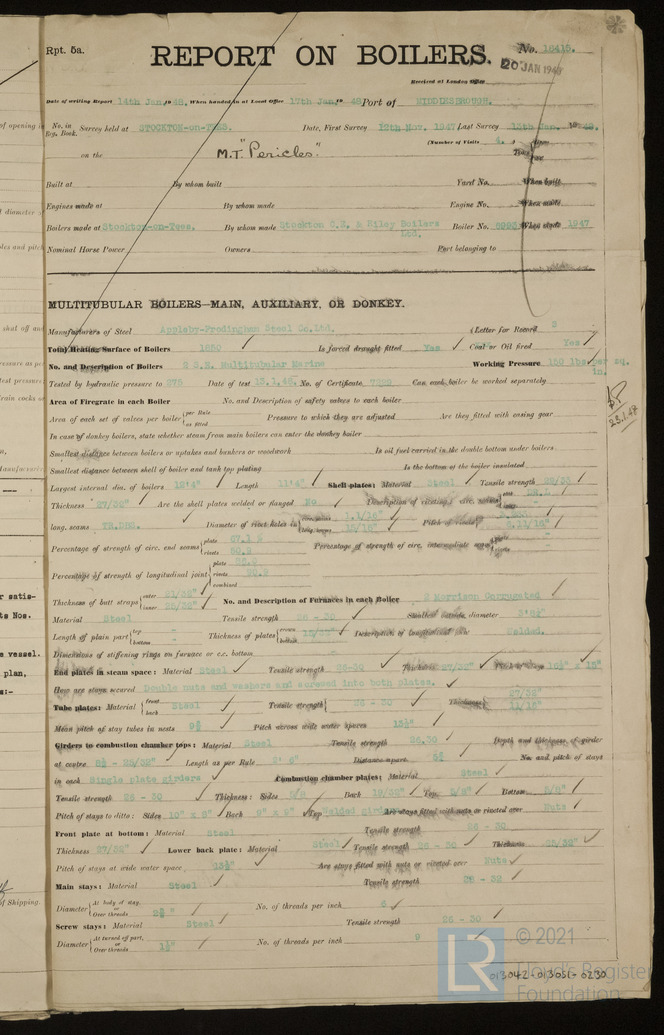 Rpt. 5a.
REPORT ON BOILERS.
No. 16415.
20 JAN 1948
Received at London Office
Date of writing Report 14th Jan. 19 48. When handed in at Local Office 17th Jan. 19 48 Port of MIDDLESBROUGH.
No. in Reg. Book. Survey held at STOCKTON-on-TEES. Date, First Survey 12th Nov. 1947 Last Survey 19 48.
on the M.T. "Pericles." (Number of Visits 4. )
Built at By whom built Yard No. When built
Engines made at By whom made Engine No. When made
Boilers made at Stockton-on-Tees. By whom made Stockton C.E. & Riley Boilers Ltd. Boiler No. When made 1947
Nominal Horse Power Owners Port belonging to
MULTITUBULAR BOILERS—MAIN, AUXILIARY, OR DONKEY.
Manufacturers of Steel Appleby-Frodingham Steel Co. Ltd. (Letter for Record S
Total Heating Surface of Boilers 1850 Is forced draught fitted Yes Coal or Oil fired Yes
No. and Description of Boilers 2 S.E. Multitubular Marine Working Pressure 150 lbs per sq. in.
Tested by hydraulic pressure to 275 Date of test 13.1.48. No. of Certificate Can each boiler be worked separately
Area of Firegrate in each Boiler No. and Description of safety valves to each boiler
Area of each set of valves per boiler {per Rule as fitted Pressure to which they are adjusted Are they fitted with easing gear
In case of donkey boilers, state whether steam from main boilers can enter the donkey boiler
Smallest distance between boilers or uptakes and bunkers or woodwork Is oil fuel carried in the double bottom under boilers
Smallest distance between shell of boiler and tank top plating Is the bottom of the boiler insulated
Largest internal dia. of boilers Length 11'4" Shell plates: Material Steel Tensile strength 29/33
Thickness 27/32" Are the shell plates welded or flanged No Description of riveting: circ. seams
long. seams TR.DRS. Diameter of rivet holes in 1.1/16" 15/16" Pitch of rivets 6.11/16"
Percentage of strength of circ. end seams {plate rivets Percentage of strength of circ. intermediate seam
Percentage of strength of longitudinal joint {plate rivets combined
Thickness of butt straps {outer 21/32" inner 25/32" No. and Description of Furnaces in each Boiler 2 Morrison Corrugated
Material Steel Tensile strength 26 - 30 Smallest outside diameter
Length of plain part {top bottom Thickness of plates {crown bottom Description of longitudinal joint Welded.
Dimensions of stiffening rings on furnace or c.c. bottom
End plates in steam space: Material Steel Tensile strength 26-30 Thickness 27/32" Pitch of stays 16½" x 15"
How are stays secured Double nuts and washers and screwed into both plates.
Tube plates: Material {front back Steel Tensile strength 26 - 30 Thickness 27/32" 11/16"
Mean pitch of stay tubes in nests Pitch across wide water spaces 13½"
Girders to combustion chamber tops: Material Steel Tensile strength 26.30 Depth and thickness of girder
at centre 8½ - 25/32" Length as per Rule Distance apart No. and pitch of stays
in each Single plate girders Combustion chamber plates: Material Steel
Tensile strength 26 - 30 Thickness: Sides 5/8 Back 19/32" Top 5/8" Bottom 5/8"
Pitch of stays to ditto: Sides 10" x 8" Back 9" x 9" Top Welded girders Are stays fitted with nuts or riveted over Nuts
Front plate at bottom: Material Steel Tensile strength 26 - 30
Thickness 27/32" Lower back plate: Material Steel Tensile strength 26 - 30 Thickness 25/32"
Pitch of stays at wide water space 13½" Are stays fitted with nuts or riveted over Nuts
Main stays: Material Steel Tensile strength 28 - 32
Diameter {At body of stay, or Over threads No. of threads per inch 6
Screw stays: Material Steel Tensile strength 26 - 30
Diameter {At turned off part, or Over threads No. of threads per inch 9
23.1.48
© 2021
Lloyd's Register
Foundation
013042-013051-0230